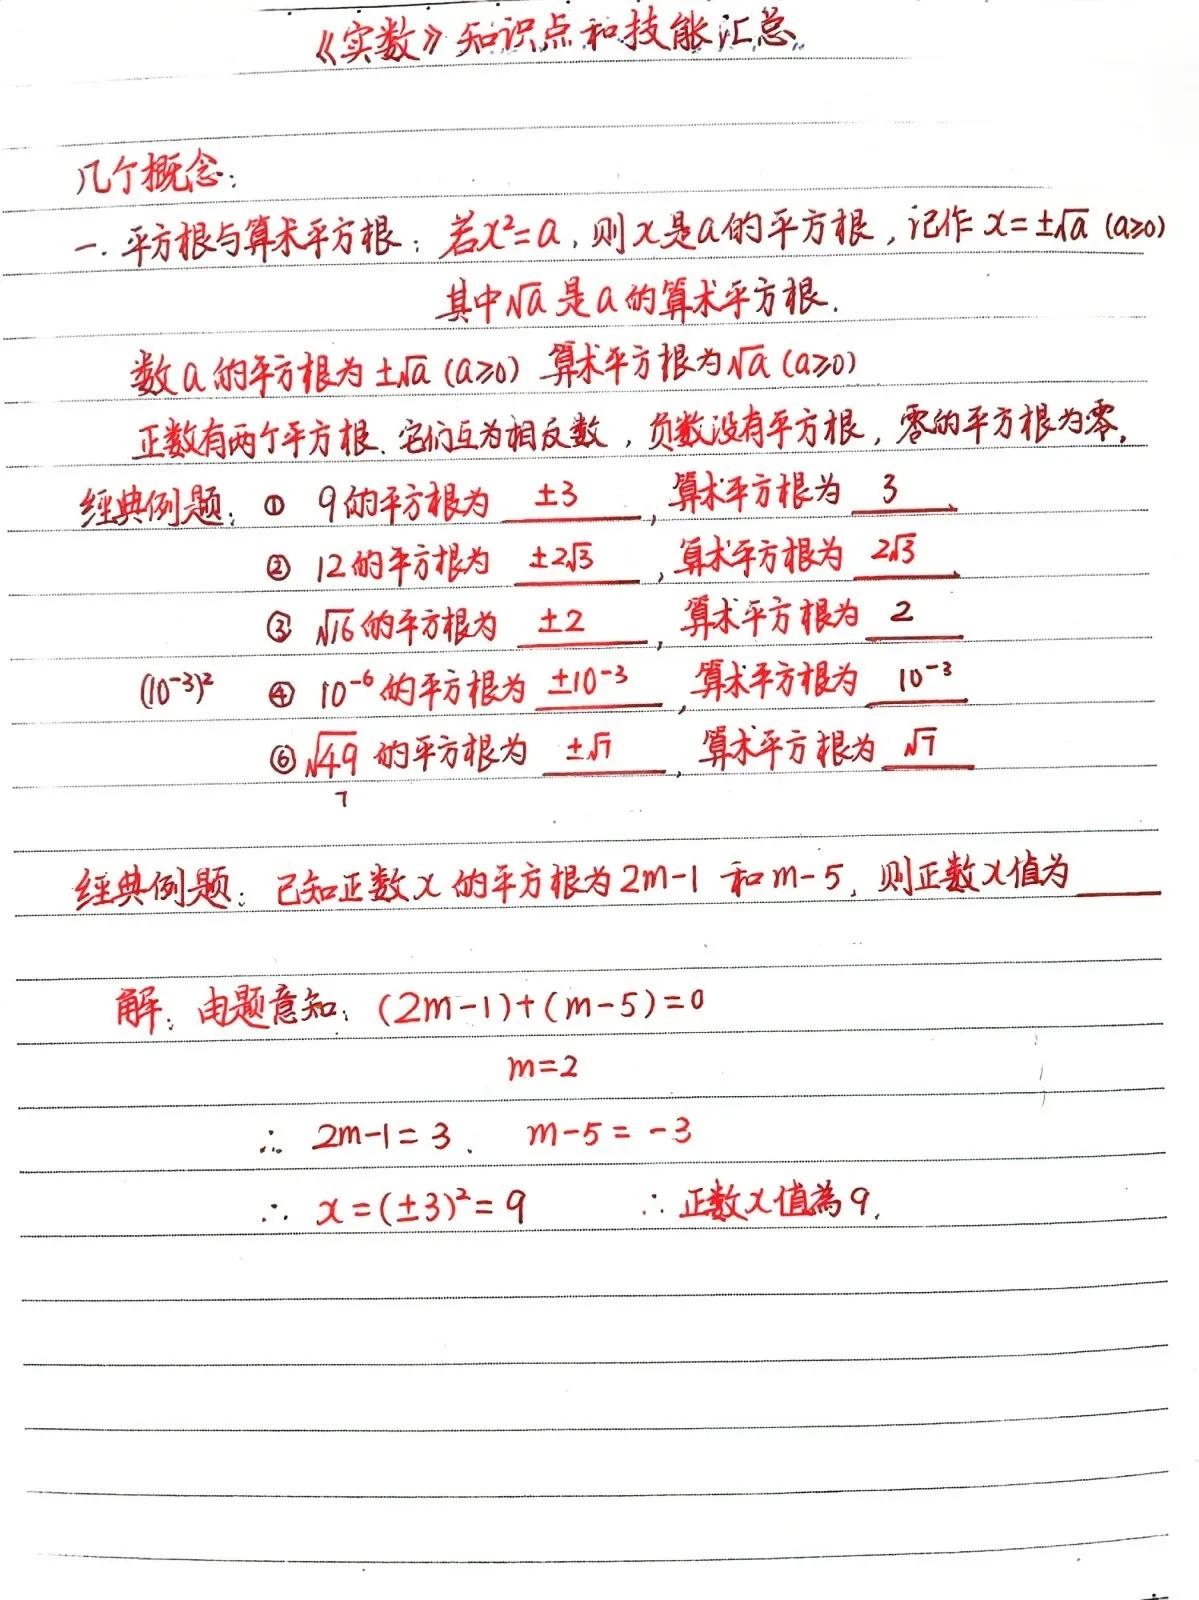 《实数》知识点和技能汇总
几个概念：
一.平方根与算术平方根：若x²=a，则x是a的平方根，记作 x=±√a (a≥0)
其中√a是a的算术平方根.
数a的平方根为±√a (a≥0) 算术平方根为√a (a≥0)
正数有两个平方根、它们互为相反数，负数没有平方根，零的平方根为零。
经典例题：① 9的平方根为 ±3 ，算术平方根为 3 、
② 12的平方根为 ±2√3 ，算术平方根为 2√3 、
③ √16的平方根为 ±2 ，算术平方根为 2
(10⁻³)² ④ 10⁻⁶的平方根为 ±10⁻³ ，算术平方根为 10⁻³
⑥ √49 的平方根为 ±√7 ，算术平方根为 √7
7
经典例题：已知正数x的平方根为2m-1 和m-5，则正数x值为____
解：由题意知：(2m-1)+(m-5)=0
m=2
∴ 2m-1=3、 m-5=-3
∴ x=(±3)²=9 ∴正数x值為9.